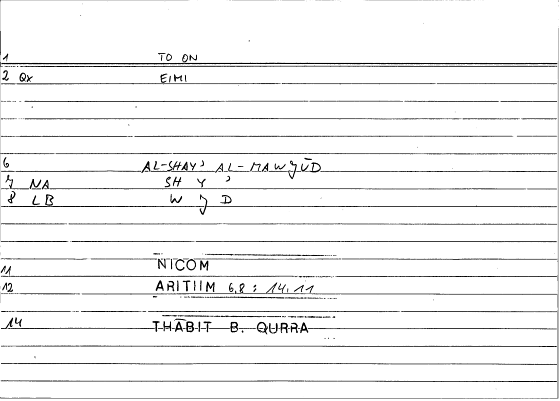 1 TO ON
2 Qx EIMI
6 AL-SHAY' AL-MAWJŪD
7 NA SH Y '
8 LB W J D
11 NICOM
12 ARITIIM 6,8 : 14.11
14 THĀBIT B. QURRA